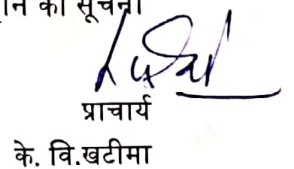 की सूचना
प्राचार्य
के. वि.खटीमा